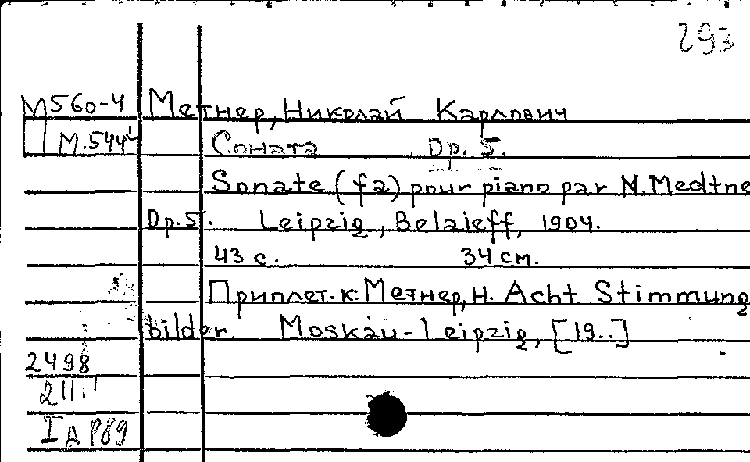 293
М560-4 Метнер, Николай Карлович
М.544 Соната Op. 5.
Sonate (fa) pour piano par N. Medtne
Op. 5. Leipzig, Belaieff, 1904.
43 с. 34 см.
Приплет. к: Метнер, Н. Acht Stimmung
bilder. Moskau-Leipzig, [19..]
2498